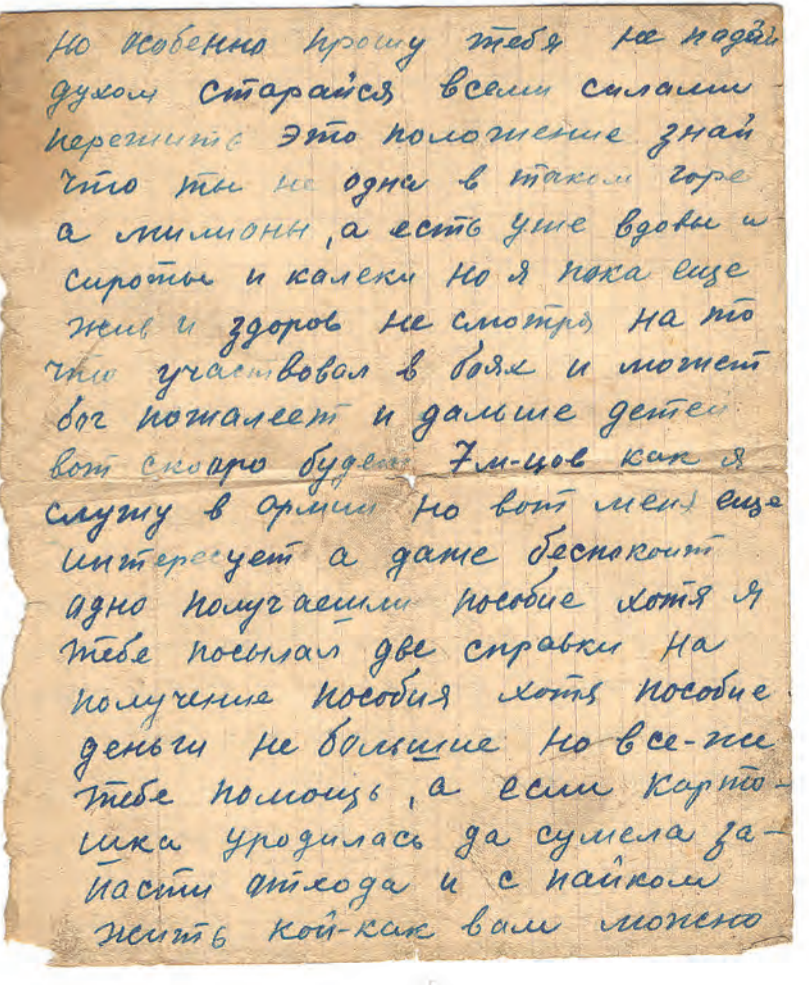 но особенно прошу тебя не падай
духом старайся всеми силами
пережить это положение знай
что ты не одна в таком горе
а милионы, а есть уже вдовы и
сироты и калеки но я пока еще
жив и здоров не смотря на то
что участвовал в боях и может
бог пожалеет и дальше детей
вот скоро будет 7 м-цов как я
служу в армии но вот меня еще
интересует а даже беспокоит
адно получаешли пособие хотя я
тебе посылал две справки на
получение пособия хотя пособие
деньги не большие но все-же
тебе помощь, а если карто-
шка уродилась да сумела за-
пасти отхода и с пайком
жить кой-как вам можно